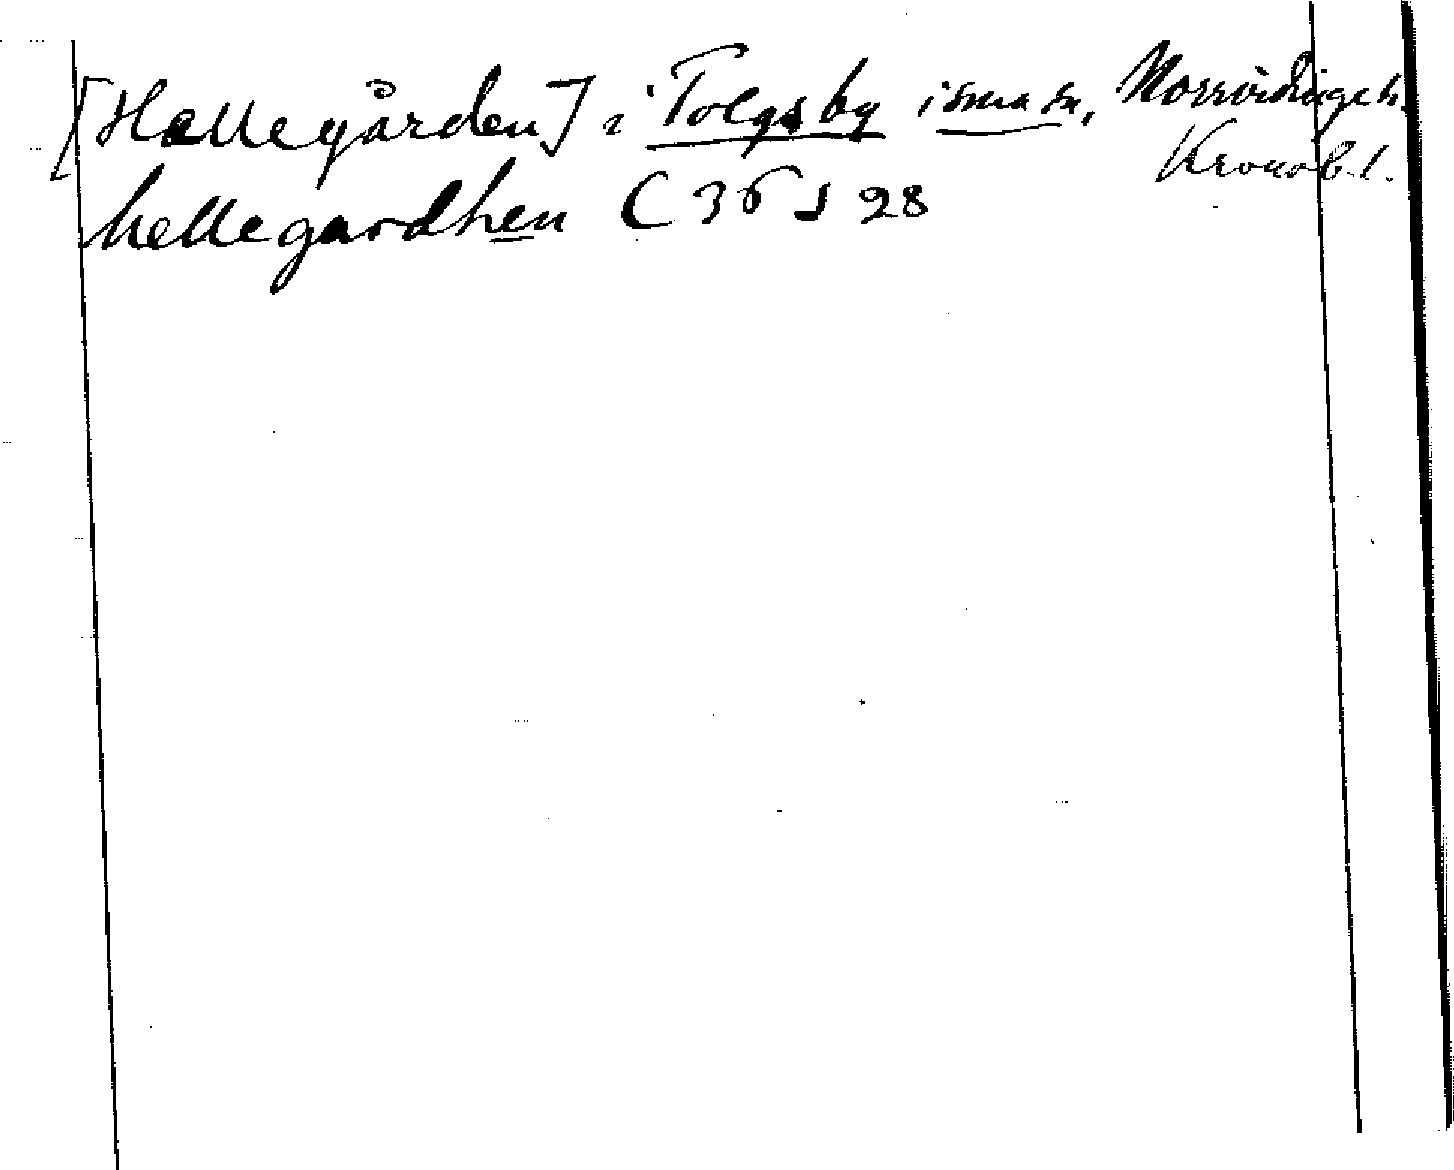 [Hallegården] i Tolgs by i sma sn, Norrvidinge h.
Kronob. l.
hellegardhen C 36 s 28